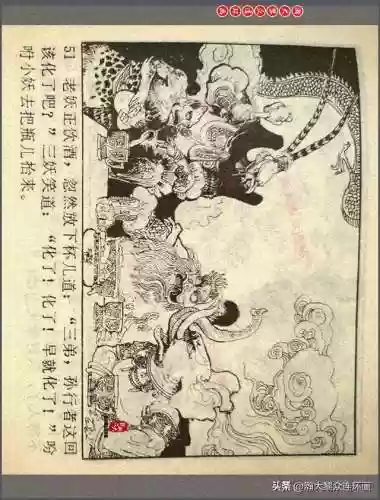 51 老妖正饮酒，忽然放下杯儿道：“三弟，孙行者这回
该化了吧？”三妖笑道：“化了！化了！早就化了！”吩
咐小妖去把瓶儿抬来。
头条 @瀚大聚众连环画